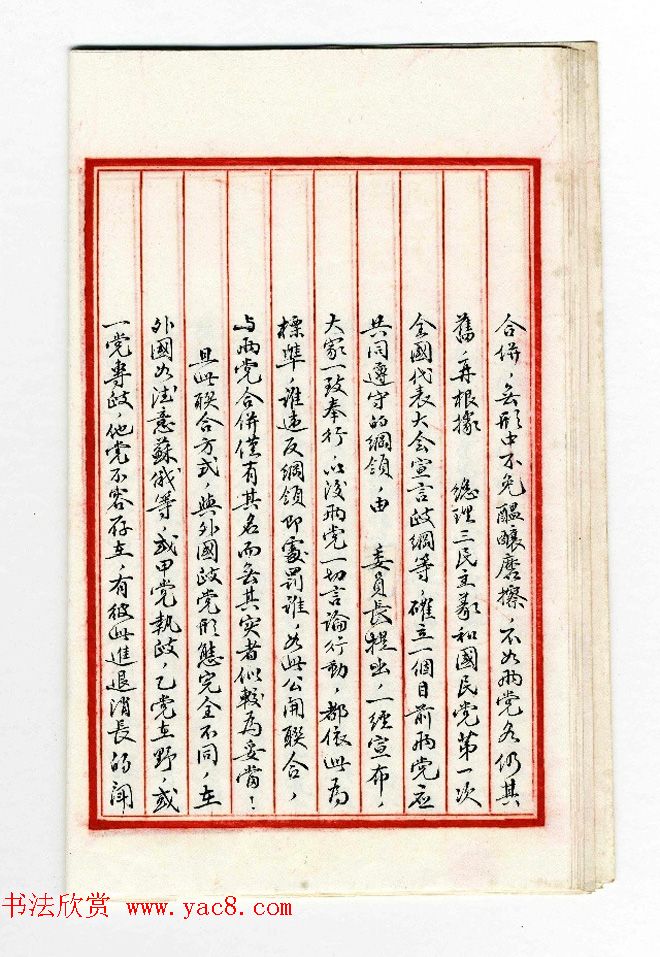 合併，無形中不免醞釀磨擦，不如兩党各仍其
舊，再根據　總理三民主義和國民党第一次
全國代表大会宣言政綱等，確立一個目前兩党应
共同遵守的綱領，由　委員長提出，一經宣布，
大家一致奉行，以後兩党一切言論行動，都依此為
標準，誰違反綱領即處罰誰，如此公開聯合，
与兩党合併僅有其名而無其实者似較為妥當；
且此聯合方式，與外國政党形態完全不同，在
外國如法意蘇俄等，或甲党執政，乙党在野，或
一党專政，他党不容存在，有彼此進退消長的
书法欣赏 www.yac8.com